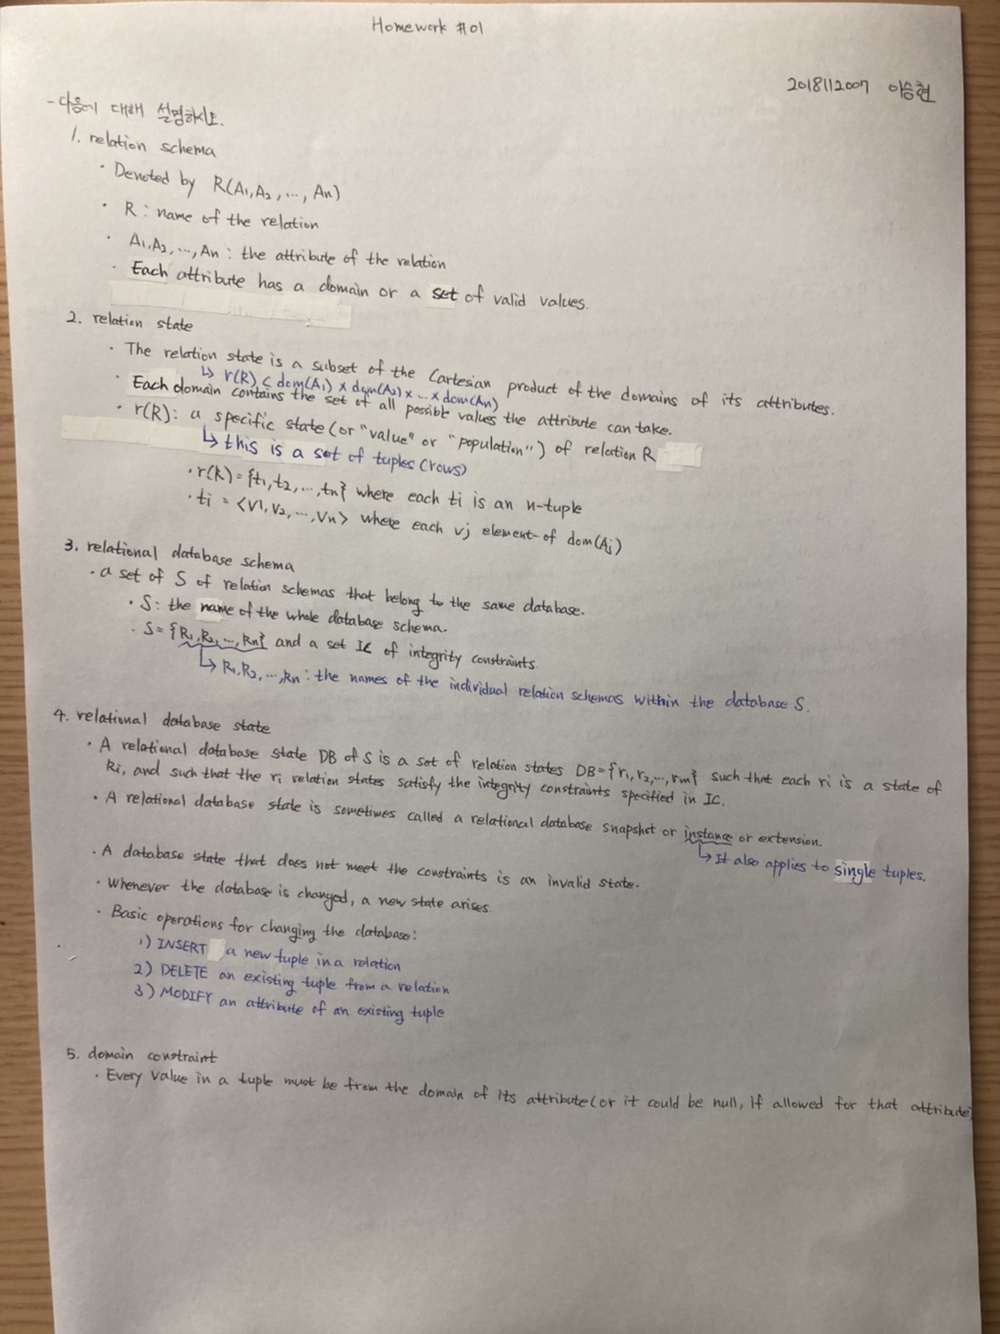 Homework #01
2018112007 이승현
- 다음에 대해 설명하시오.
1. relation schema
· Denoted by R(A1, A2, ..., An)
· R : name of the relation
· A1, A2, ..., An : the attribute of the relation
· Each attribute has a domain or a set of valid values.
2. relation state
· The relation state is a subset of the Cartesian product of the domains of its attributes.
↳ r(R) ⊂ dom(A1) x dom(A2) x ... x dom(An)
· Each domain contains the set of all possible values the attribute can take.
· r(R): a specific state (or "value" or "population") of relation R
↳ this is a set of tuples (rows)
· r(R) = {t1, t2, ..., tn} where each ti is an n-tuple
· ti = <v1, v2, ..., vn> where each vj element-of dom(Aj)
3. relational database schema
· a set of S of relation schemas that belong to the same database.
· S: the name of the whole database schema.
· S = {R1, R2, ..., Rn} and a set IC of integrity constraints.
↳ R1, R2, ..., Rn : the names of the individual relation schemas within the database S.
4. relational database state
· A relational database state DB of S is a set of relation states DB = {r1, r2, ..., rm} such that each ri is a state of
Ri, and such that the ri relation states satisfy the integrity constraints specified in IC.
· A relational database state is sometimes called a relational database snapshot or instance or extension.
↳ It also applies to single tuples.
· A database state that does not meet the constraints is an invalid state.
· Whenever the database is changed, a new state arises.
· Basic operations for changing the database:
1) INSERT a new tuple in a relation
2) DELETE an existing tuple from a relation
3) MODIFY an attribute of an existing tuple
5. domain constraint
· Every value in a tuple must be from the domain of its attribute (or it could be null, if allowed for that attribute)